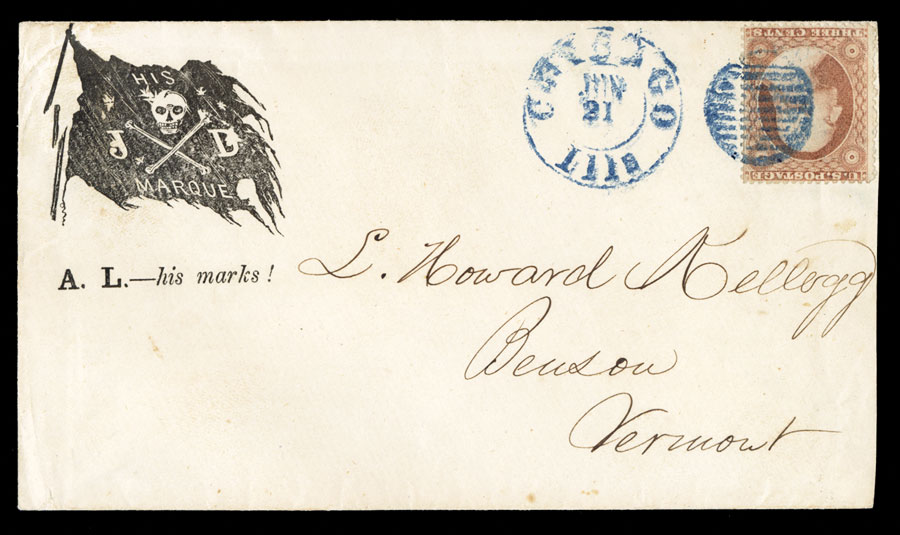 HIS
J D
MARQUE
A. L.—his marks!
CHICAGO
JUN
21
ILL
THREE CENTS
U.S. POSTAGE
L. Howard Kellogg
Benson
Vermont